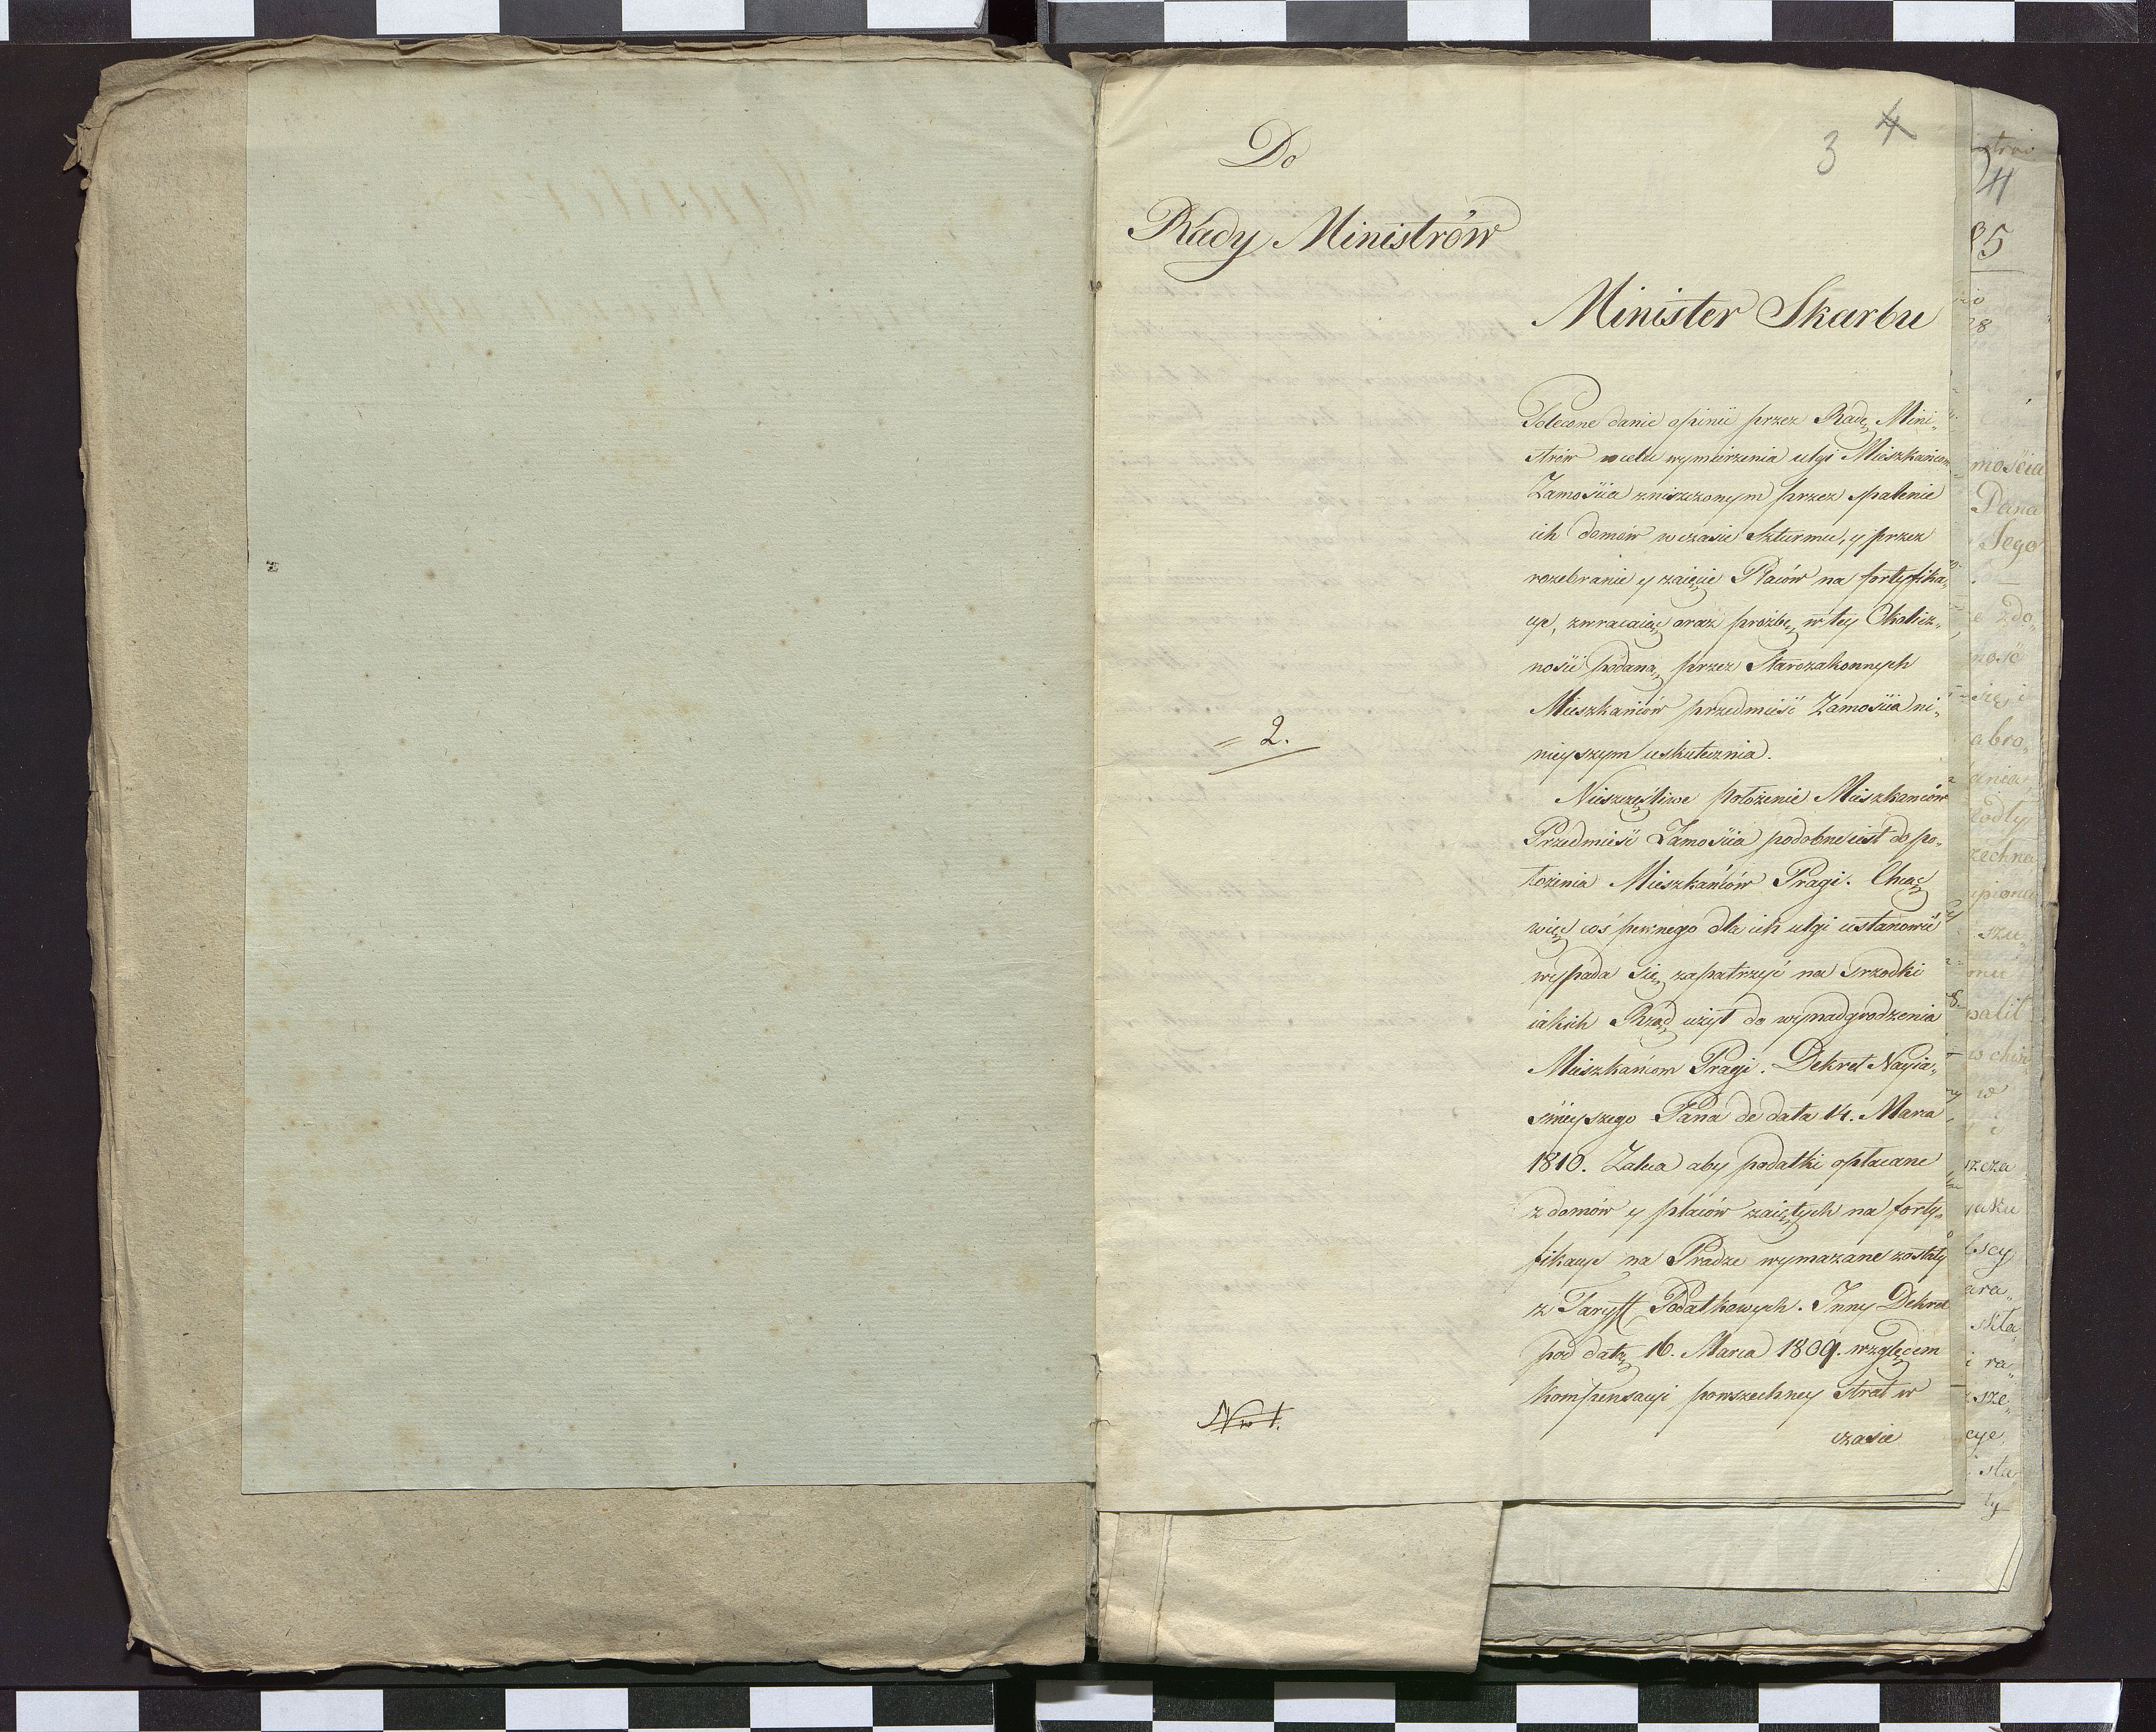 Do
3 4
Rady Ministrów
Minister Skarbu
Polecone danie opinii przez Radę Mini„
strów w celu wymierzenia ulgi Mieszkańcom
Zamościa zniszczonym przez spalenie
ich domów w czasie Szturmu, y przez
rozebranie y zaięcie Placów na fortyfika„
cye, zwracaiąc oraz prożbę w tey Okolicz„
ności podaną przez Starozakonnych
Mieszkańców przedmieść Zamościa ni„
nieyszym uskutecznia.
= 2.
Nieszczęśliwe położenie Mieszkańców
Przedmieść Zamościa podobne iest do po„
łożenia Mieszkańców Pragi. Chcąc
więc coś pewnego dla ich ulgi ustanowić
wypada się zapatrzyć na srzodki
iakich Rząd użył do wynadgrodzenia
Mieszkańcom Pragi. Dekret Nayia„
śnieyszego Pana de data 14. Marca
1810. Zaleca aby podatki opłacane
z domów y placów zaiętych na forty„
fikacye na Pradze wymazane zostały
z Taryff Podatkowych. Inny Dekret
pod datą 16. Marca 1809. względem
kompensacyi powszechney strat w
czasie
N 1.